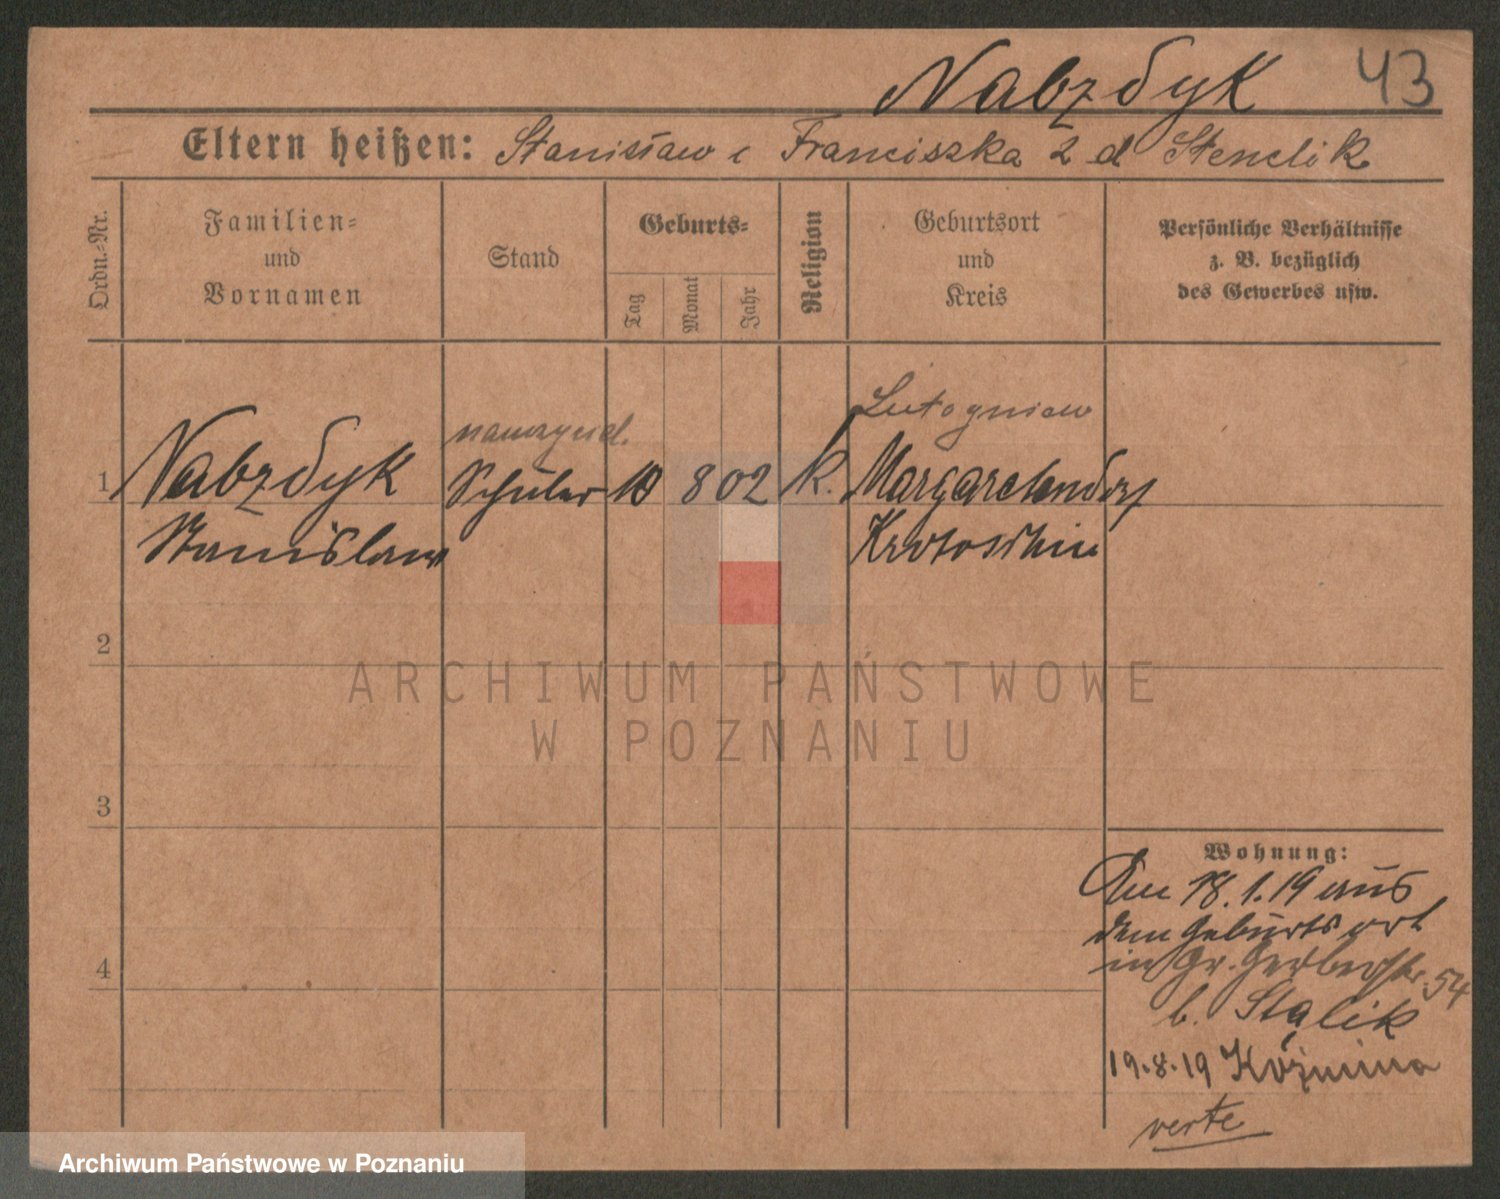 Nabzdyk 43
Eltern heißen: Stanisław i Franciszka z d Stenclik
Ordn.-Nr.
Familien- und Vornamen
Stand
Geburts-
Tag
Monat
Jahr
Religion
Geburtsort und Kreis
Persönliche Verhältnisse
z. B. bezüglich
des Gewerbes usw.
Lutogniew
1 Nabzdyk Schüler 8 02 k. Margaretendorf
Stanislaus Krotoschin
2
3
4
Wohnung:
Am 18.1.19 aus
dem Geburtsort
in Gr. Gerberstr. 54
b. Stalik
19.8.19 Koźmina
verte
ARCHIWUM PAŃSTWOWE
W POZNANIU
Archiwum Państwowe w Poznaniu